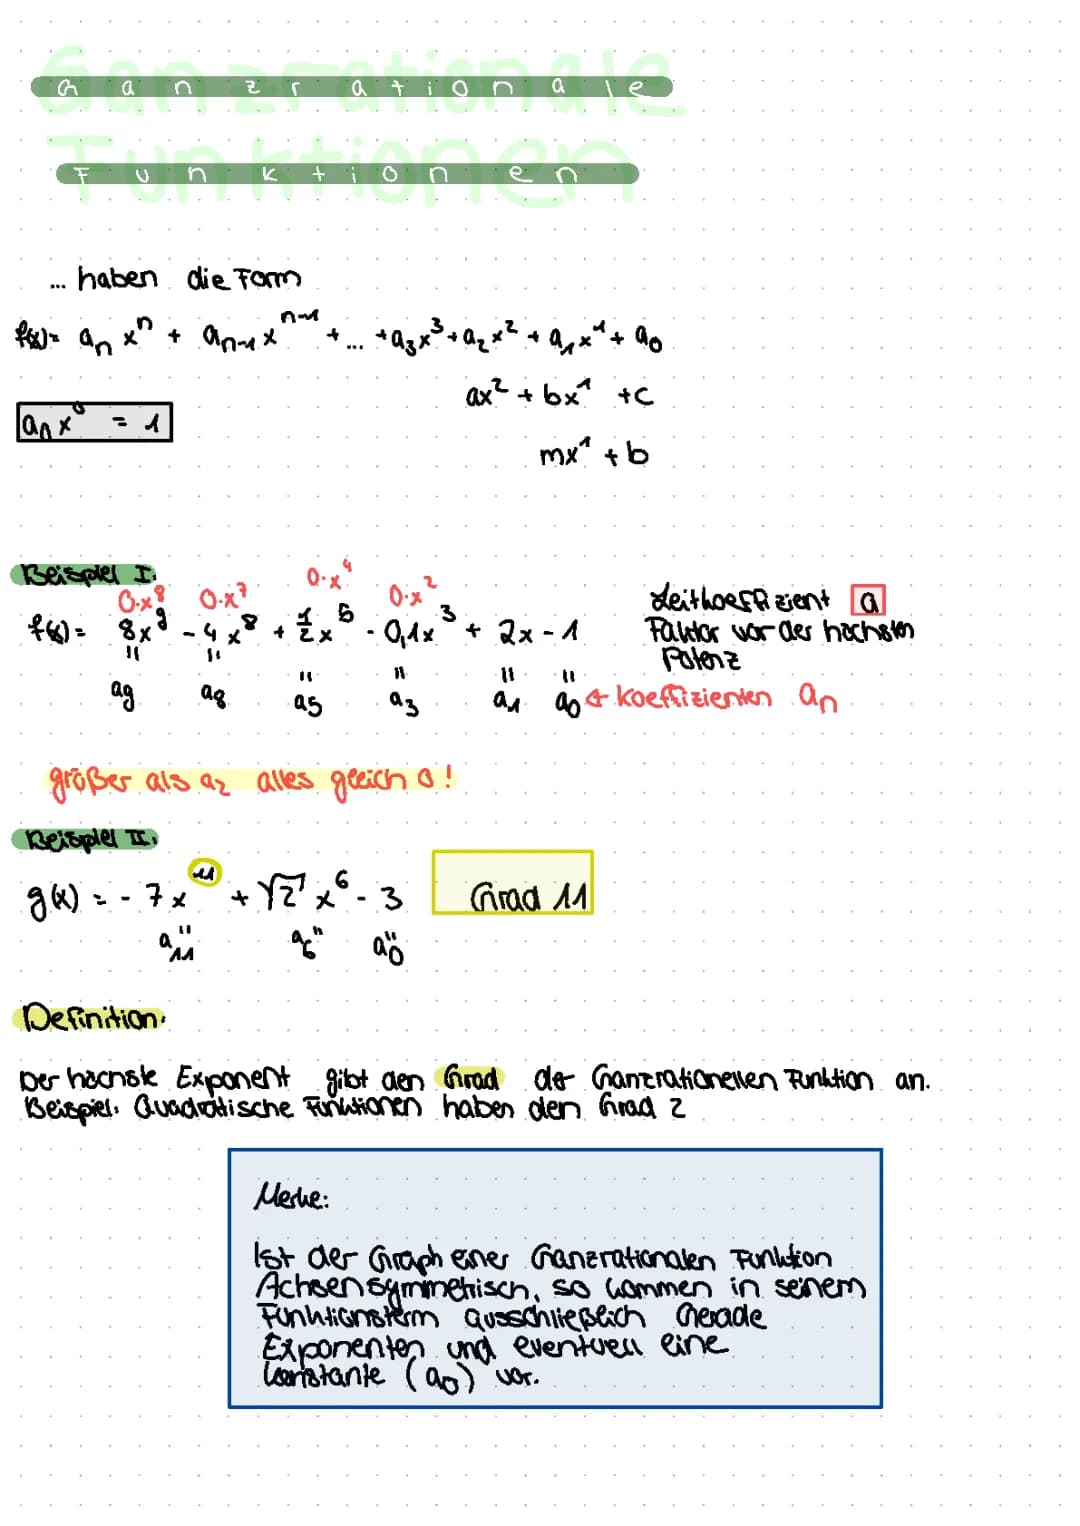 Ganzrationale
Funktionen
... haben die Form
f(x)= aₙ xⁿ + aₙ₋₁ xⁿ⁻¹ + ... + a₃x³ + a₂x² + a₁x¹ + a₀
ax² + bx¹ + c
aₙ x⁰ = 1
mx¹ + b
Beispiel I:
0·x⁸ 0·x⁷ 0·x⁴ 0·x²
f(x)= 8x⁹ - 4x⁸ + 1/2 x⁵ - 0,1x³ + 2x - 1
a₉ a₈ a₅ a₃ a₁ a₀ ← Koeffizienten aₙ
Leitkoeffizient a
Faktor vor der höchsten
Potenz
größer als a₂ alles gleich 0!
Beispiel II:
g(x) = - 7x¹¹ + √2 x⁶ - 3 Grad 11
a₁₁ a₆ a₀
Definition:
Der höchste Exponent gibt den Grad der Ganzrationellen Funktion an.
Beispiel: Quadratische Funktionen haben den Grad 2
Merke:
Ist der Graph einer Ganzrationalen Funktion
Achsensymmetrisch, so kommen in seinem
Funktionsterm ausschließlich Gerade
Exponenten und eventuell eine
Konstante (a₀) vor.